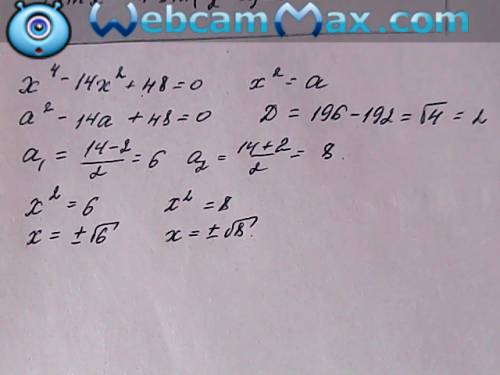 WebcamMax.com
x⁴ - 14x² + 48 = 0 x² = a
a² - 14a + 48 = 0 D = 196 - 192 = √4 = 2
a₁ = (14-2)/2 = 6 a₂ = (14+2)/2 = 8.
x² = 6 x² = 8
x = ±√6 x = ±√8